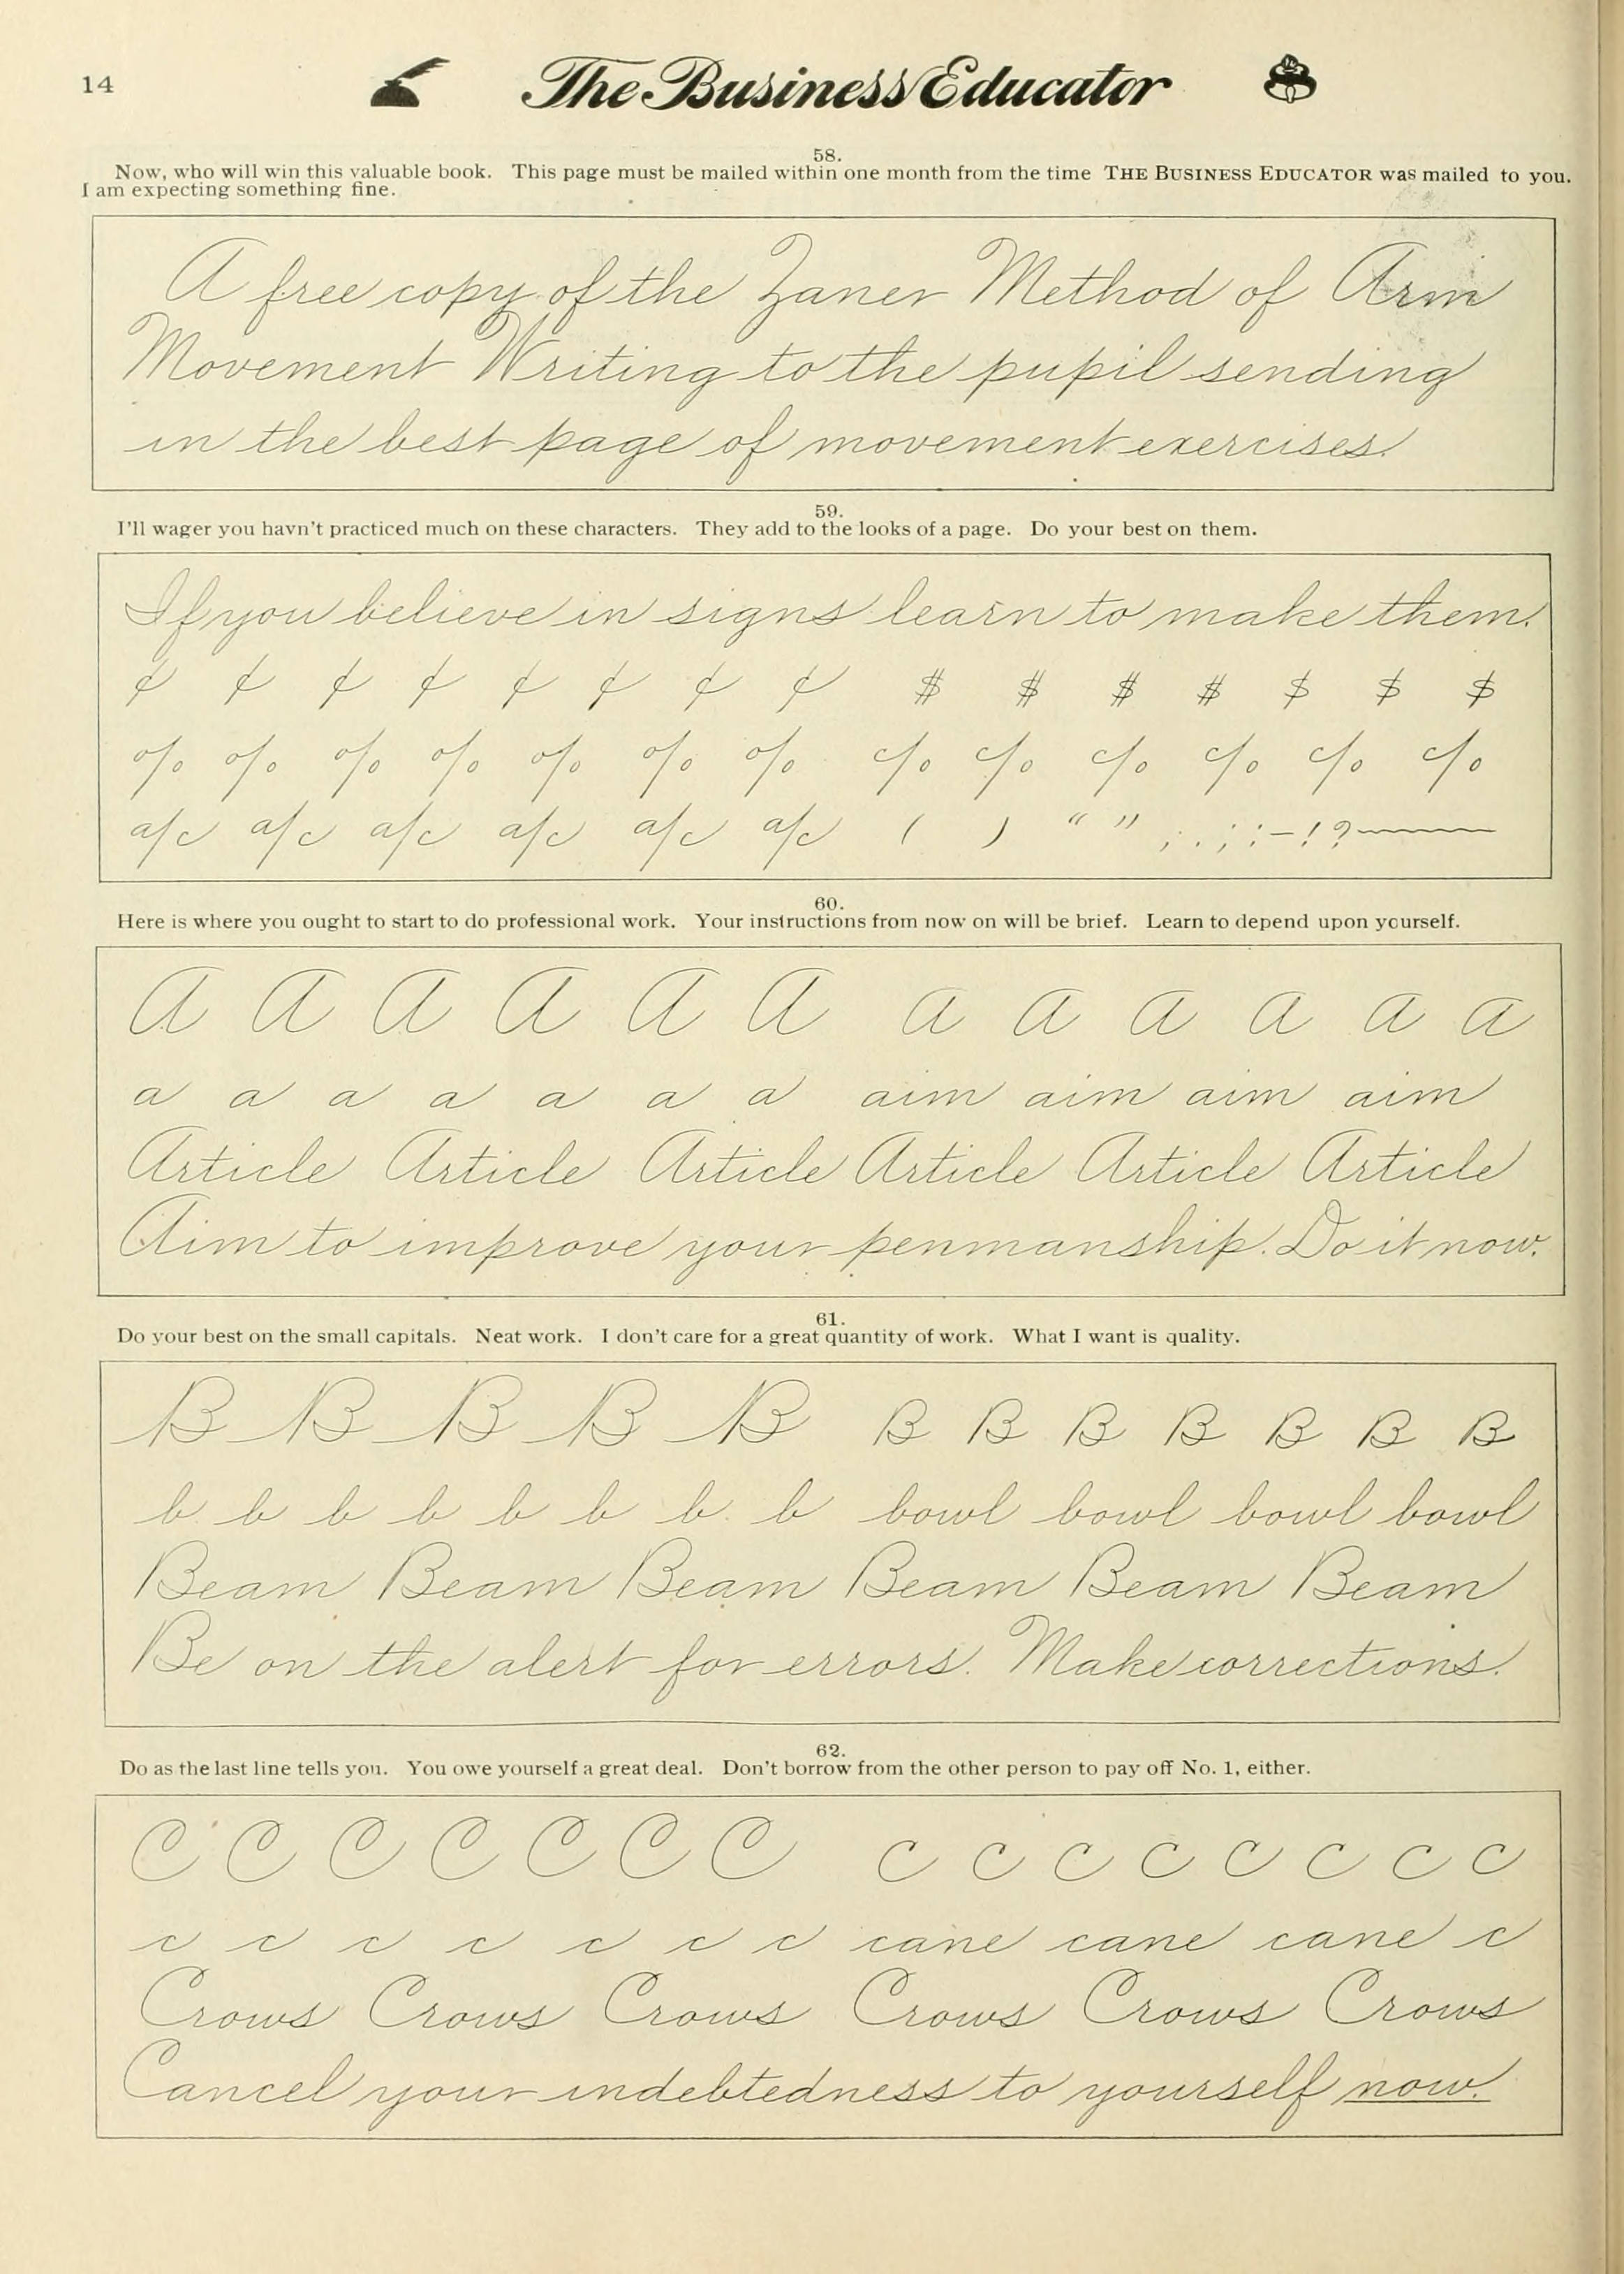 14
The Business Educator
58.
Now, who will win this valuable book. This page must be mailed within one month from the time THE BUSINESS EDUCATOR was mailed to you.
I am expecting something fine.
A free copy of the Zaner Method of Arm
Movement Writing to the pupil sending
in the best page of movement exercises.
59.
I'll wager you havn't practiced much on these characters. They add to the looks of a page. Do your best on them.
If you believe in signs learn to make them.
¢ ¢ ¢ ¢ ¢ ¢ ¢ ¢ $ $ $ $ $ $ $
% % % % % % % c/o c/o c/o c/o c/o c/o
a/c a/c a/c a/c a/c a/c ( ) “ ” , . ; : – ! ? —
60.
Here is where you ought to start to do professional work. Your instructions from now on will be brief. Learn to depend upon yourself.
A A A A A A A A A A A A
a a a a a a a aim aim aim aim
Article Article Article Article Article Article
Aim to improve your penmanship. Do it now.
61.
Do your best on the small capitals. Neat work. I don't care for a great quantity of work. What I want is quality.
B B B B B B B B B B B B
b b b b b b b b bowl bowl bowl bowl
Beam Beam Beam Beam Beam Beam
Be on the alert for errors. Make corrections.
62.
Do as the last line tells you. You owe yourself a great deal. Don't borrow from the other person to pay off No. 1, either.
C C C C C C C C C C C C C C C
c c c c c c c cane cane cane c
Crows Crows Crows Crows Crows Crows
Cancel your indebtedness to yourself now.